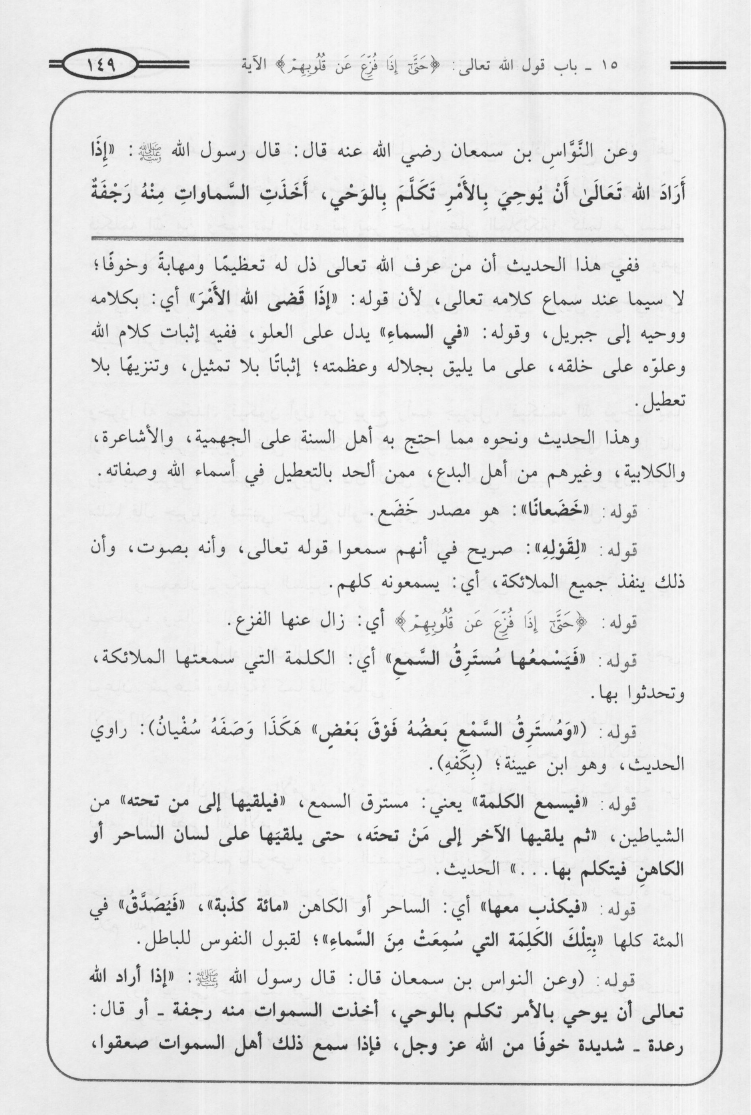 ١٥ ـ باب قول الله تعالى: ﴿حَتَّىٰٓ إِذَا فُزِّعَ عَن قُلُوبِهِمْ﴾ الآية
١٤٩
وعن النَّوَّاسِ بن سمعان رضي الله عنه قال: قال رسول الله ﷺ: «إِذَا
أَرَادَ الله تَعَالَىٰ أَنْ يُوحِيَ بِالأَمْرِ تَكَلَّمَ بِالوَحْي، أَخَذَتِ السَّماواتِ مِنْهُ رَجْفَةٌ
ففي هذا الحديث أن من عرف الله تعالى ذل له تعظيمًا ومهابةً وخوفًا؛
لا سيما عند سماع كلامه تعالى، لأن قوله: «إذَا قَضى الله الأَمْرَ» أي: بكلامه
ووحيه إلى جبريل، وقوله: «في السماءِ» يدل على العلو، ففيه إثبات كلام الله
وعلوّه على خلقه، على ما يليق بجلاله وعظمته؛ إثباتًا بلا تمثيل، وتنزيهًا بلا
تعطيل.
وهذا الحديث ونحوه مما احتج به أهل السنة على الجهمية، والأشاعرة،
والكلابية، وغيرهم من أهل البدع، ممن ألحد بالتعطيل في أسماء الله وصفاته.
قوله: «خَضَعانًا»: هو مصدر خَضَع.
قوله: «لِقَوْلِهِ»: صريح في أنهم سمعوا قوله تعالى، وأنه بصوت، وأن
ذلك ينفذ جميع الملائكة، أي: يسمعونه كلهم.
قوله: ﴿حَتَّىٰٓ إِذَا فُزِّعَ عَن قُلُوبِهِمْ﴾ أي: زال عنها الفزع.
قوله: «فَيَسْمعُها مُستَرِقُ السَّمعِ» أي: الكلمة التي سمعتها الملائكة،
وتحدثوا بها.
قوله: («وَمُستَرِقُ السَّمْعِ بَعضُهُ فَوْقَ بَعْضٍ» هَكَذَا وَصَفَهُ سُفْيانُ): راوي
الحديث، وهو ابن عيينة؛ (بِكَفهِ).
قوله: «فيسمع الكلمة» يعني: مسترق السمع، «فيلقيها إلى من تحته» من
الشياطين، «ثم يلقيها الآخر إلى مَنْ تحتَه، حتى يلقيَها على لسان الساحر أو
الكاهنِ فيتكلم بها...» الحديث.
قوله: «فيكذب معها» أي: الساحر أو الكاهن «مائة كذبة»، «فَيُصَدَّقُ» في
المئة كلها «بِتِلْكَ الكَلِمَة التي سُمِعَتْ مِنَ السَّماءِ»؛ لقبول النفوس للباطل.
قوله: (وعن النواس بن سمعان قال: قال رسول الله ﷺ: «إذا أراد الله
تعالى أن يوحي بالأمر تكلم بالوحي، أخذت السموات منه رجفة ـ أو قال:
رعدة ـ شديدة خوفًا من الله عز وجل، فإذا سمع ذلك أهل السموات صعقوا،